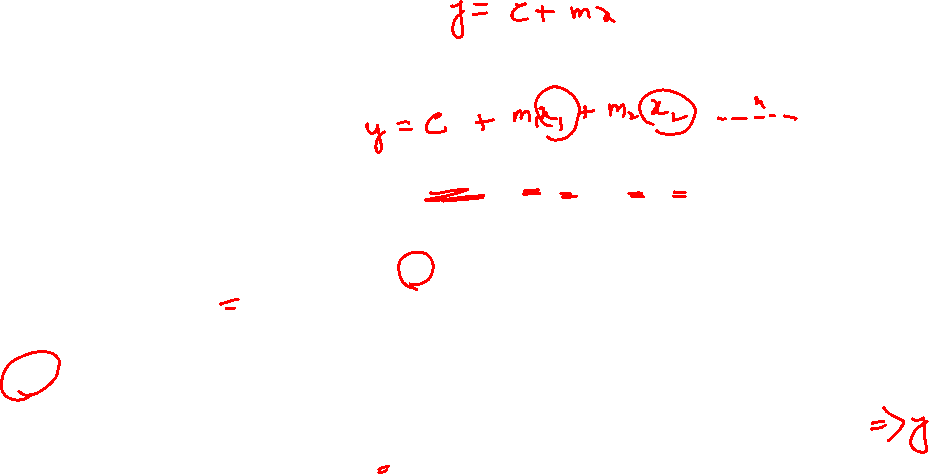 y = c + mx
y = c + m₁x₁ + m₂ x₂ ------ n
=
=> y